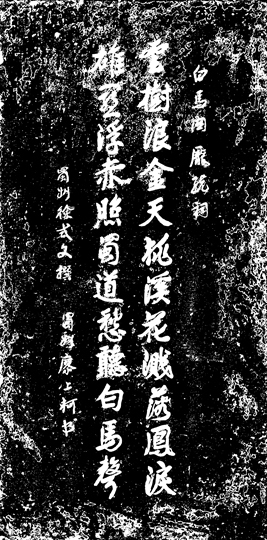 白馬關龐統祠
雲樹浪金天桃溪花濺落鳳淚
雄浮赤照蜀道愁聽白馬聲
蜀州徐式文撰
蜀都康上柯書